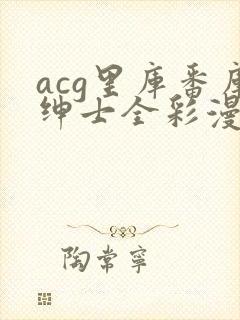 acg里库番库
绅士全彩漫
陶常宁